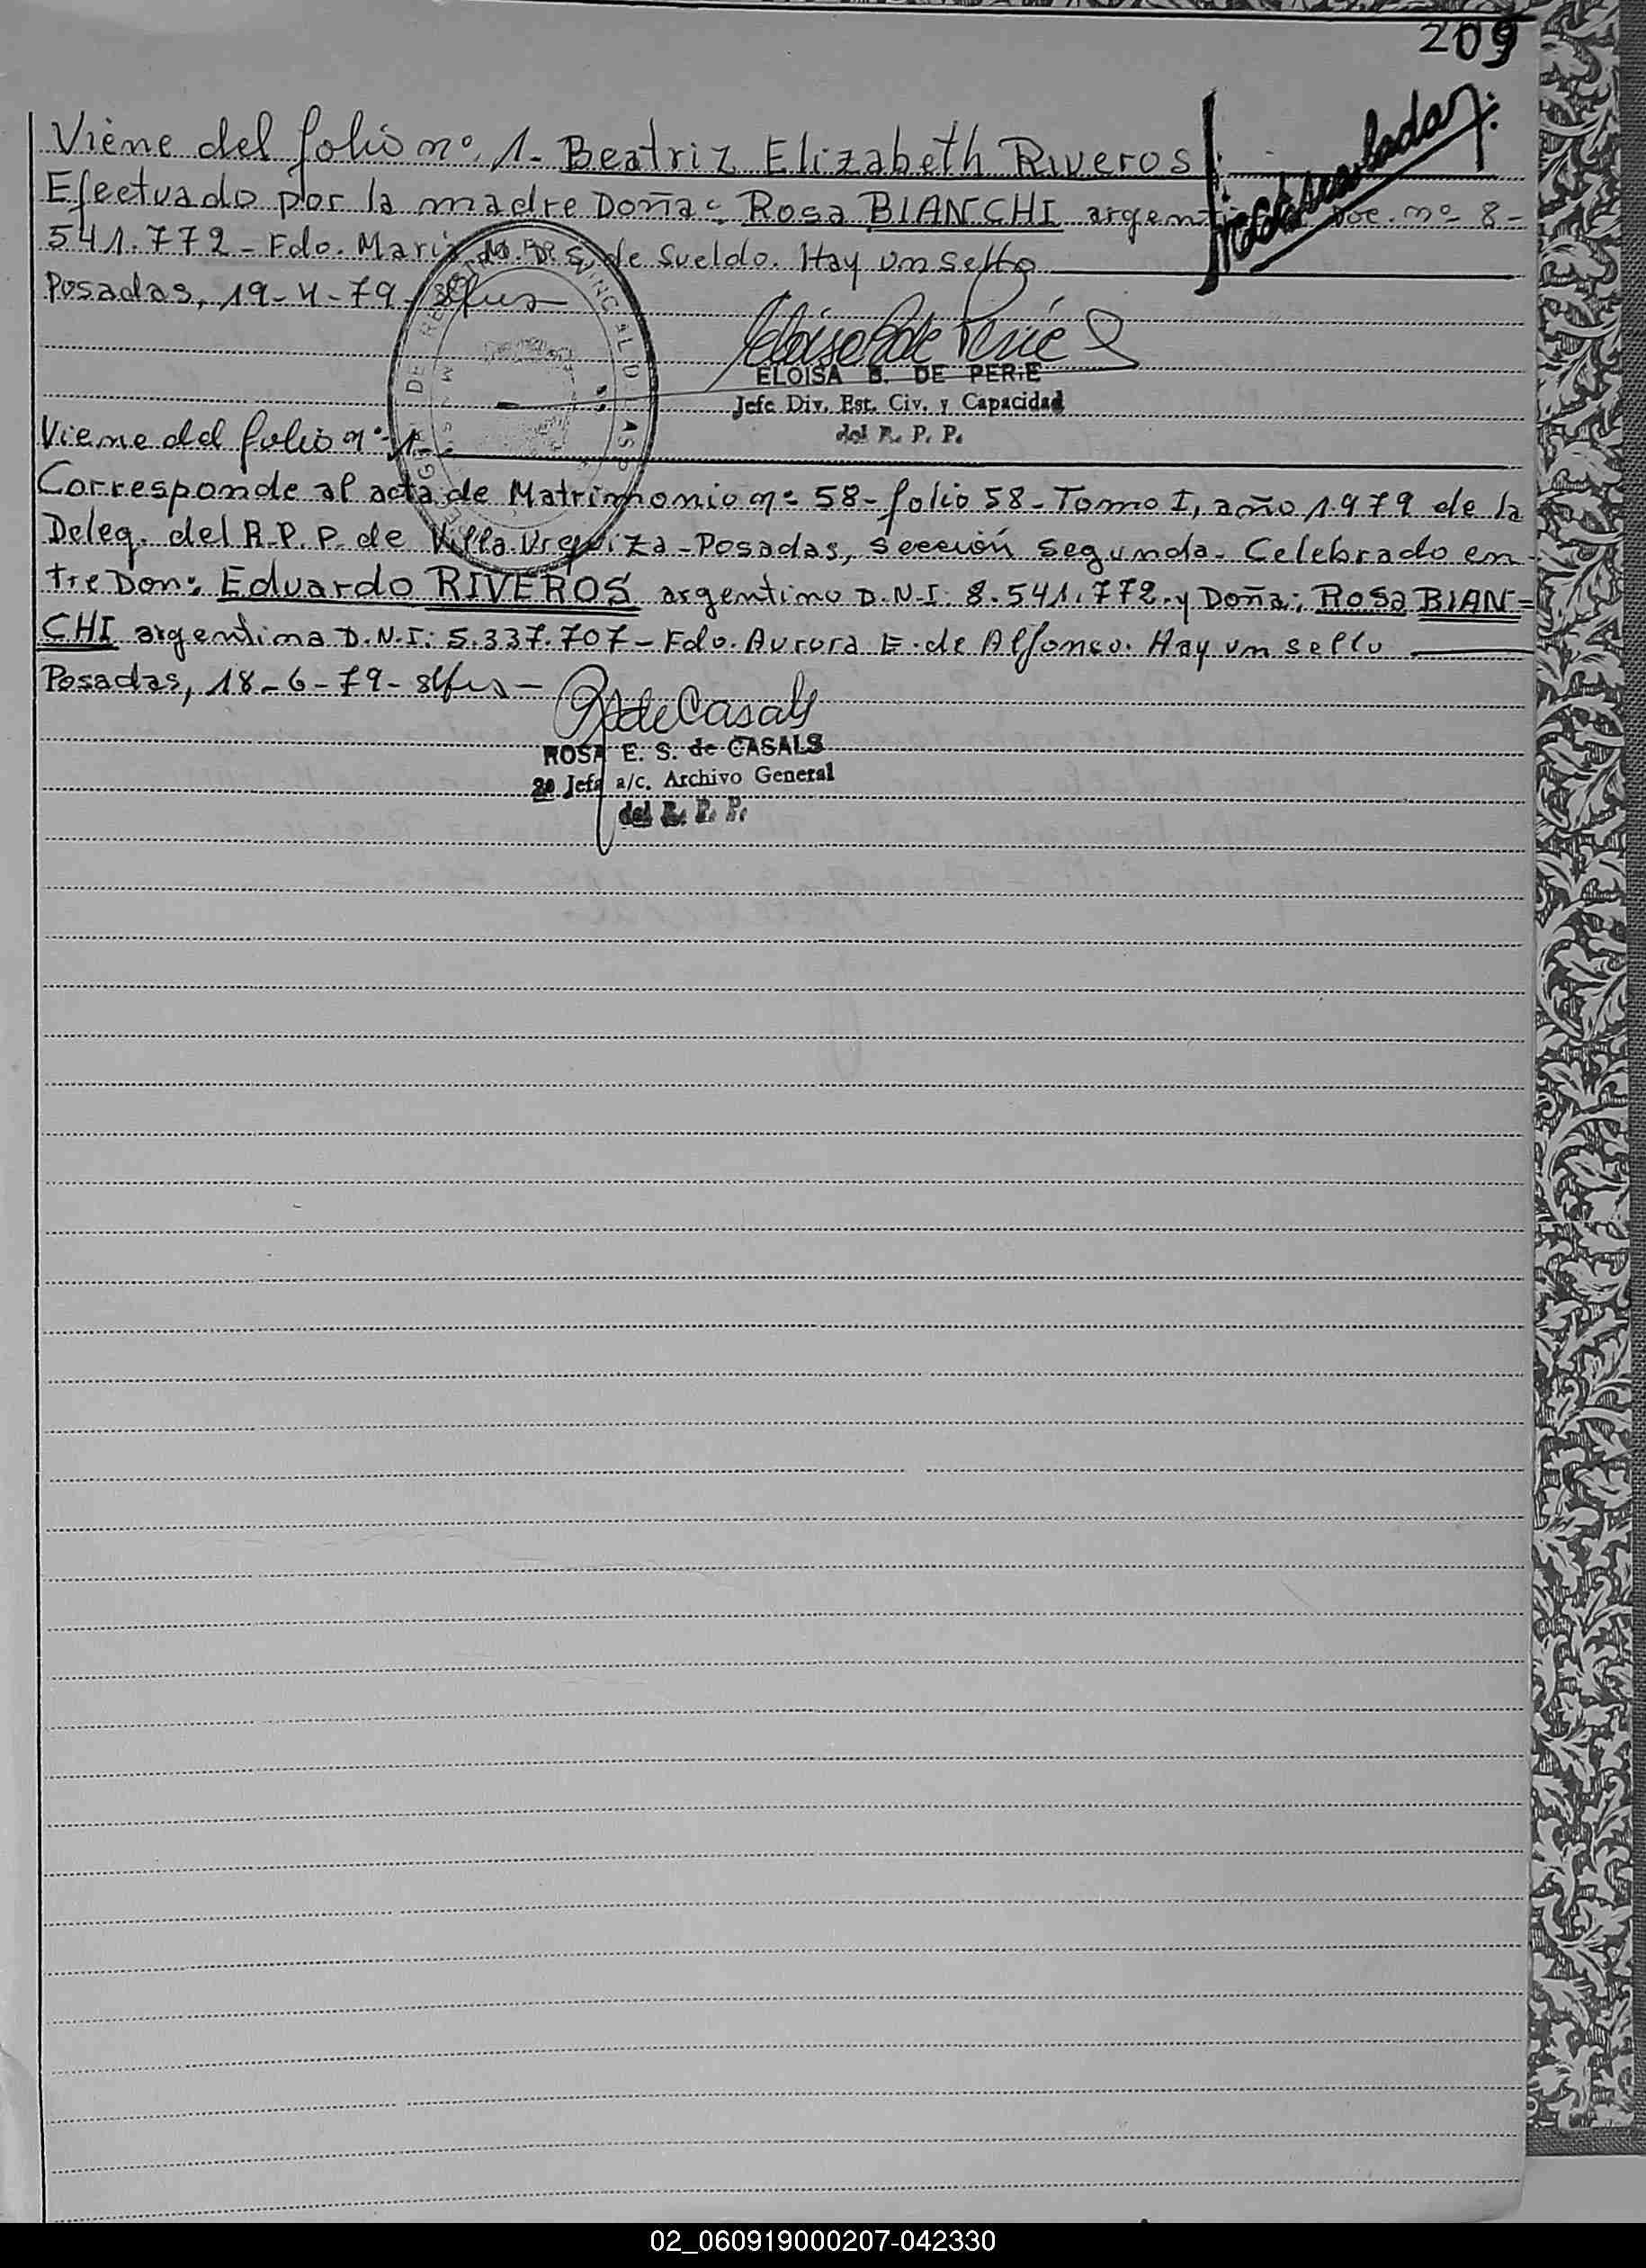 209
Viene del folio nº 1- Beatriz Elizabeth Riveros:
Efectuado por la madre Doña: Rosa BIANCHI argentina Doc. nº 8-
541.772- Fdo. Maria de Sueldo. Hay un sello
Posadas, 19-4-79-
ELOISA B. DE PERIE
Jefe Div. Est. Civ. y Capacidad
del R. P. P.
Viene del folio nº 1-
Corresponde al acta de Matrimonio nº 58- folio 58- Tomo I, año 1.979 de la
Deleg. del R.P.P. de Villa Urquiza-Posadas, sección segunda. Celebrado en-
tre Don: Eduardo RIVEROS argentino D.N.I. 8.541.772.y Doña: Rosa BIAN=
CHI argentina D.N.I: 5.337.707- Fdo. Aurora E. de Alfonso. Hay un sello
Posadas, 18-6-79-
R de Casals
ROSA E. S. de CASALS
2º Jefa a/c. Archivo General
del R. P. P.
02_060919000207-042330